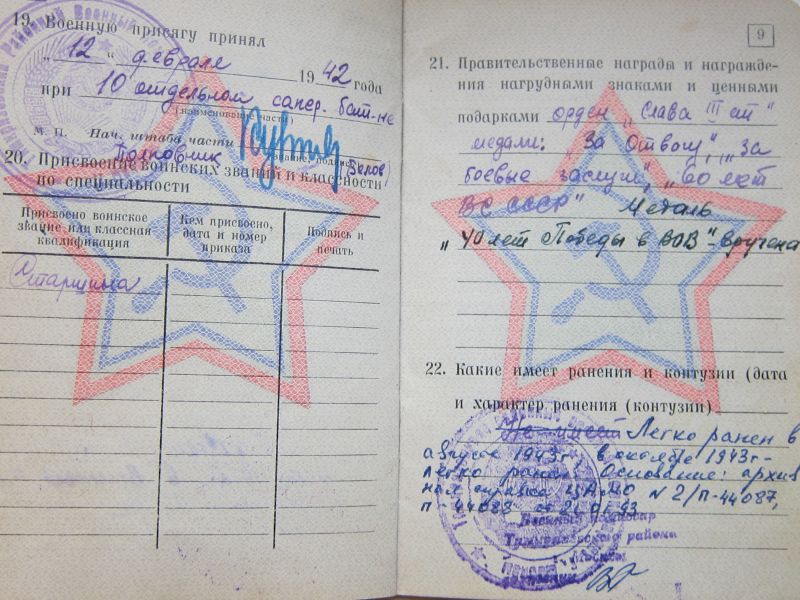 19. Военную присягу принял
„ 12 “ февраля 1942 года
при 10 отдельном сапер. бат-не
(наименование части)
М. П. Нач. штаба части
Полковник (Белов)
20. Присвоение воинских званий и классности
по специальности
Присвоено воинское звание или классная квалификация
Кем присвоено, дата и номер приказа
Подпись и печать
Старшина
9
21. Правительственные награды и награжде-
ния нагрудными знаками и ценными
подарками орден „Слава III ст“
медали: „За Отвагу“, „За
боевые заслуги“, „60 лет
ВС СССР“ Медаль
„40 лет Победы в ВОВ“ - вручена
22. Какие имеет ранения и контузии (дата
и характер ранения (контузии)
Не имеет Легко ранен в
августе 1943г., в октябре 1943г-
легко ранен. Основание: архив
ная справка ЦАМО N 2/П-44087,
П-44088 от 21.01.93
Военный комиссар
Тимирязевского района
г. Москвы